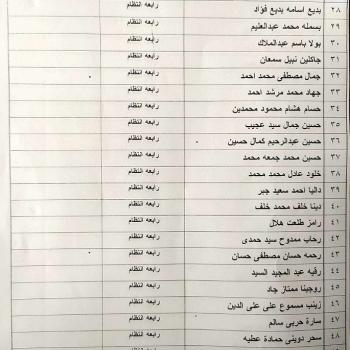 ٢٨ بديع اسامه بديع فؤاد رابعه انتظام
٢٩ بسمله محمد عبدالعليم رابعه انتظام
٣٠ بولا باسم عبدالملاك رابعه انتظام
٣١ جاكلين نبيل سمعان رابعه انتظام
٣٢ جمال مصطفى محمد احمد رابعه انتظام
٣٣ جهاد محمد مرشد احمد رابعه انتظام
٣٤ حسام هشام محمود محمدين رابعه انتظام
٣٥ حسين جمال سيد عجيب رابعه انتظام
٣٦ حسين عبدالرحيم كمال حسين رابعه انتظام
٣٧ حسين محمد جمعه محمد رابعه انتظام
٣٨ خلود عادل محمد محمد رابعه انتظام
٣٩ داليا احمد سعيد جبر رابعه انتظام
٤٠ دينا خلف محمد خلف رابعه انتظام
٤١ رامز طلعت هلال رابعه انتظام
٤٢ رحاب ممدوح سيد حمدى رابعه انتظام
٤٣ رحمه حسان مصطفى حسان رابعه انتظام
٤٤ رقيه عبد المجيد السيد رابعه انتظام
٤٥ روجينا ممتاز جاد رابعه انتظام
٤٦ زينب مسموع على على الدين رابعه انتظام
٤٧ سارة حربى سالم رابعه انتظام
٤٨ سحر دوينى حمادة عطيه رابعه انتظام